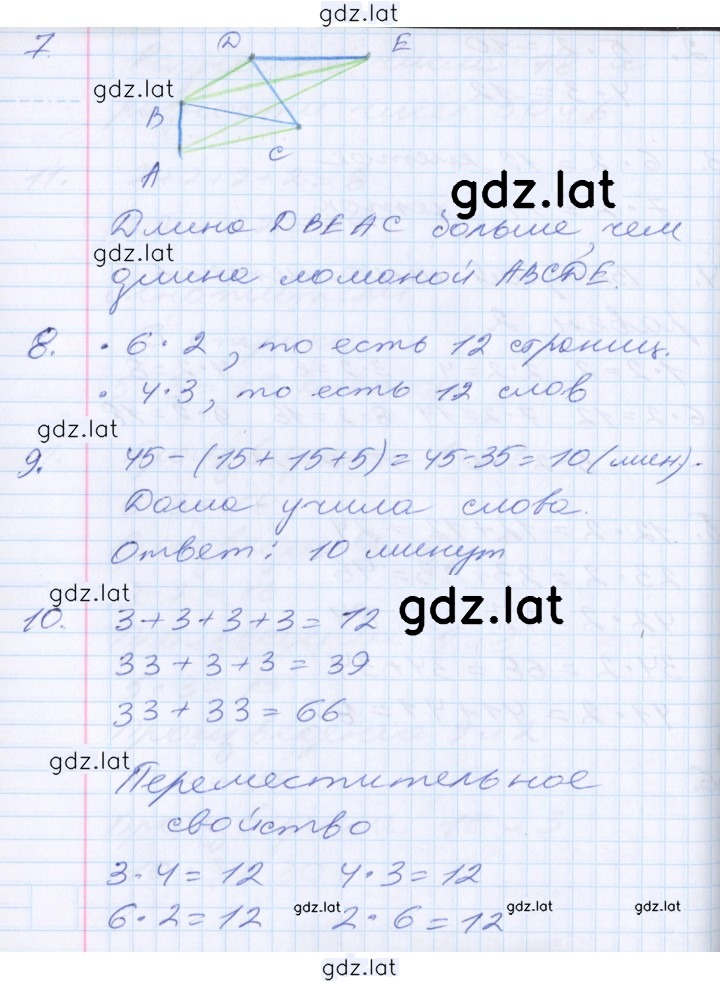 gdz.lat
7.
D
E
gdz.lat
B
C
A
gdz.lat
Длина DBEAC больше, чем
gdz.lat
длина ломаной ABCDE.
8. • 6·2, то есть 12 страниц.
• 4·3, то есть 12 слов
gdz.lat
9. 45-(15+15+5)=45-35=10(мин).
Даша учила слова.
Ответ: 10 минут
gdz.lat
gdz.lat
10. 3+3+3+3=12
33+3+3=39
33+33=66
gdz.lat
Переместительное
свойство
3·4=12 4·3=12
6·2=12 2·6=12
gdz.lat
gdz.lat
gdz.lat
gdz.lat